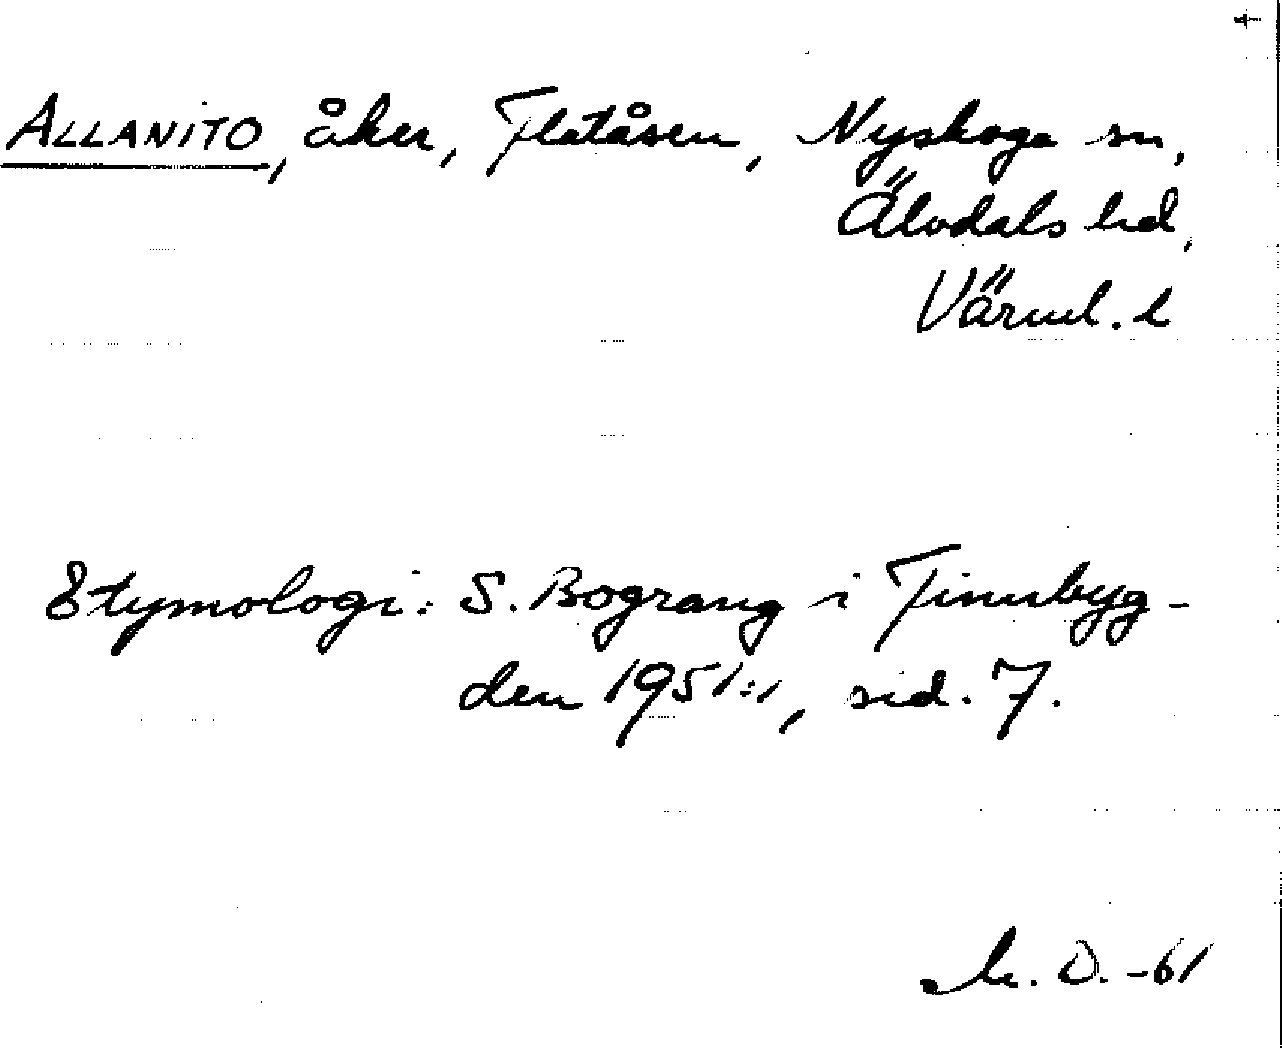 ALLANITO, åker, Flatåsen, Nyskoga sn,
Älvdals hd,
Värml. l
Etymologi: S. Bograng i Finnbyg-
den 1951:1, sid. 7.
D. -61